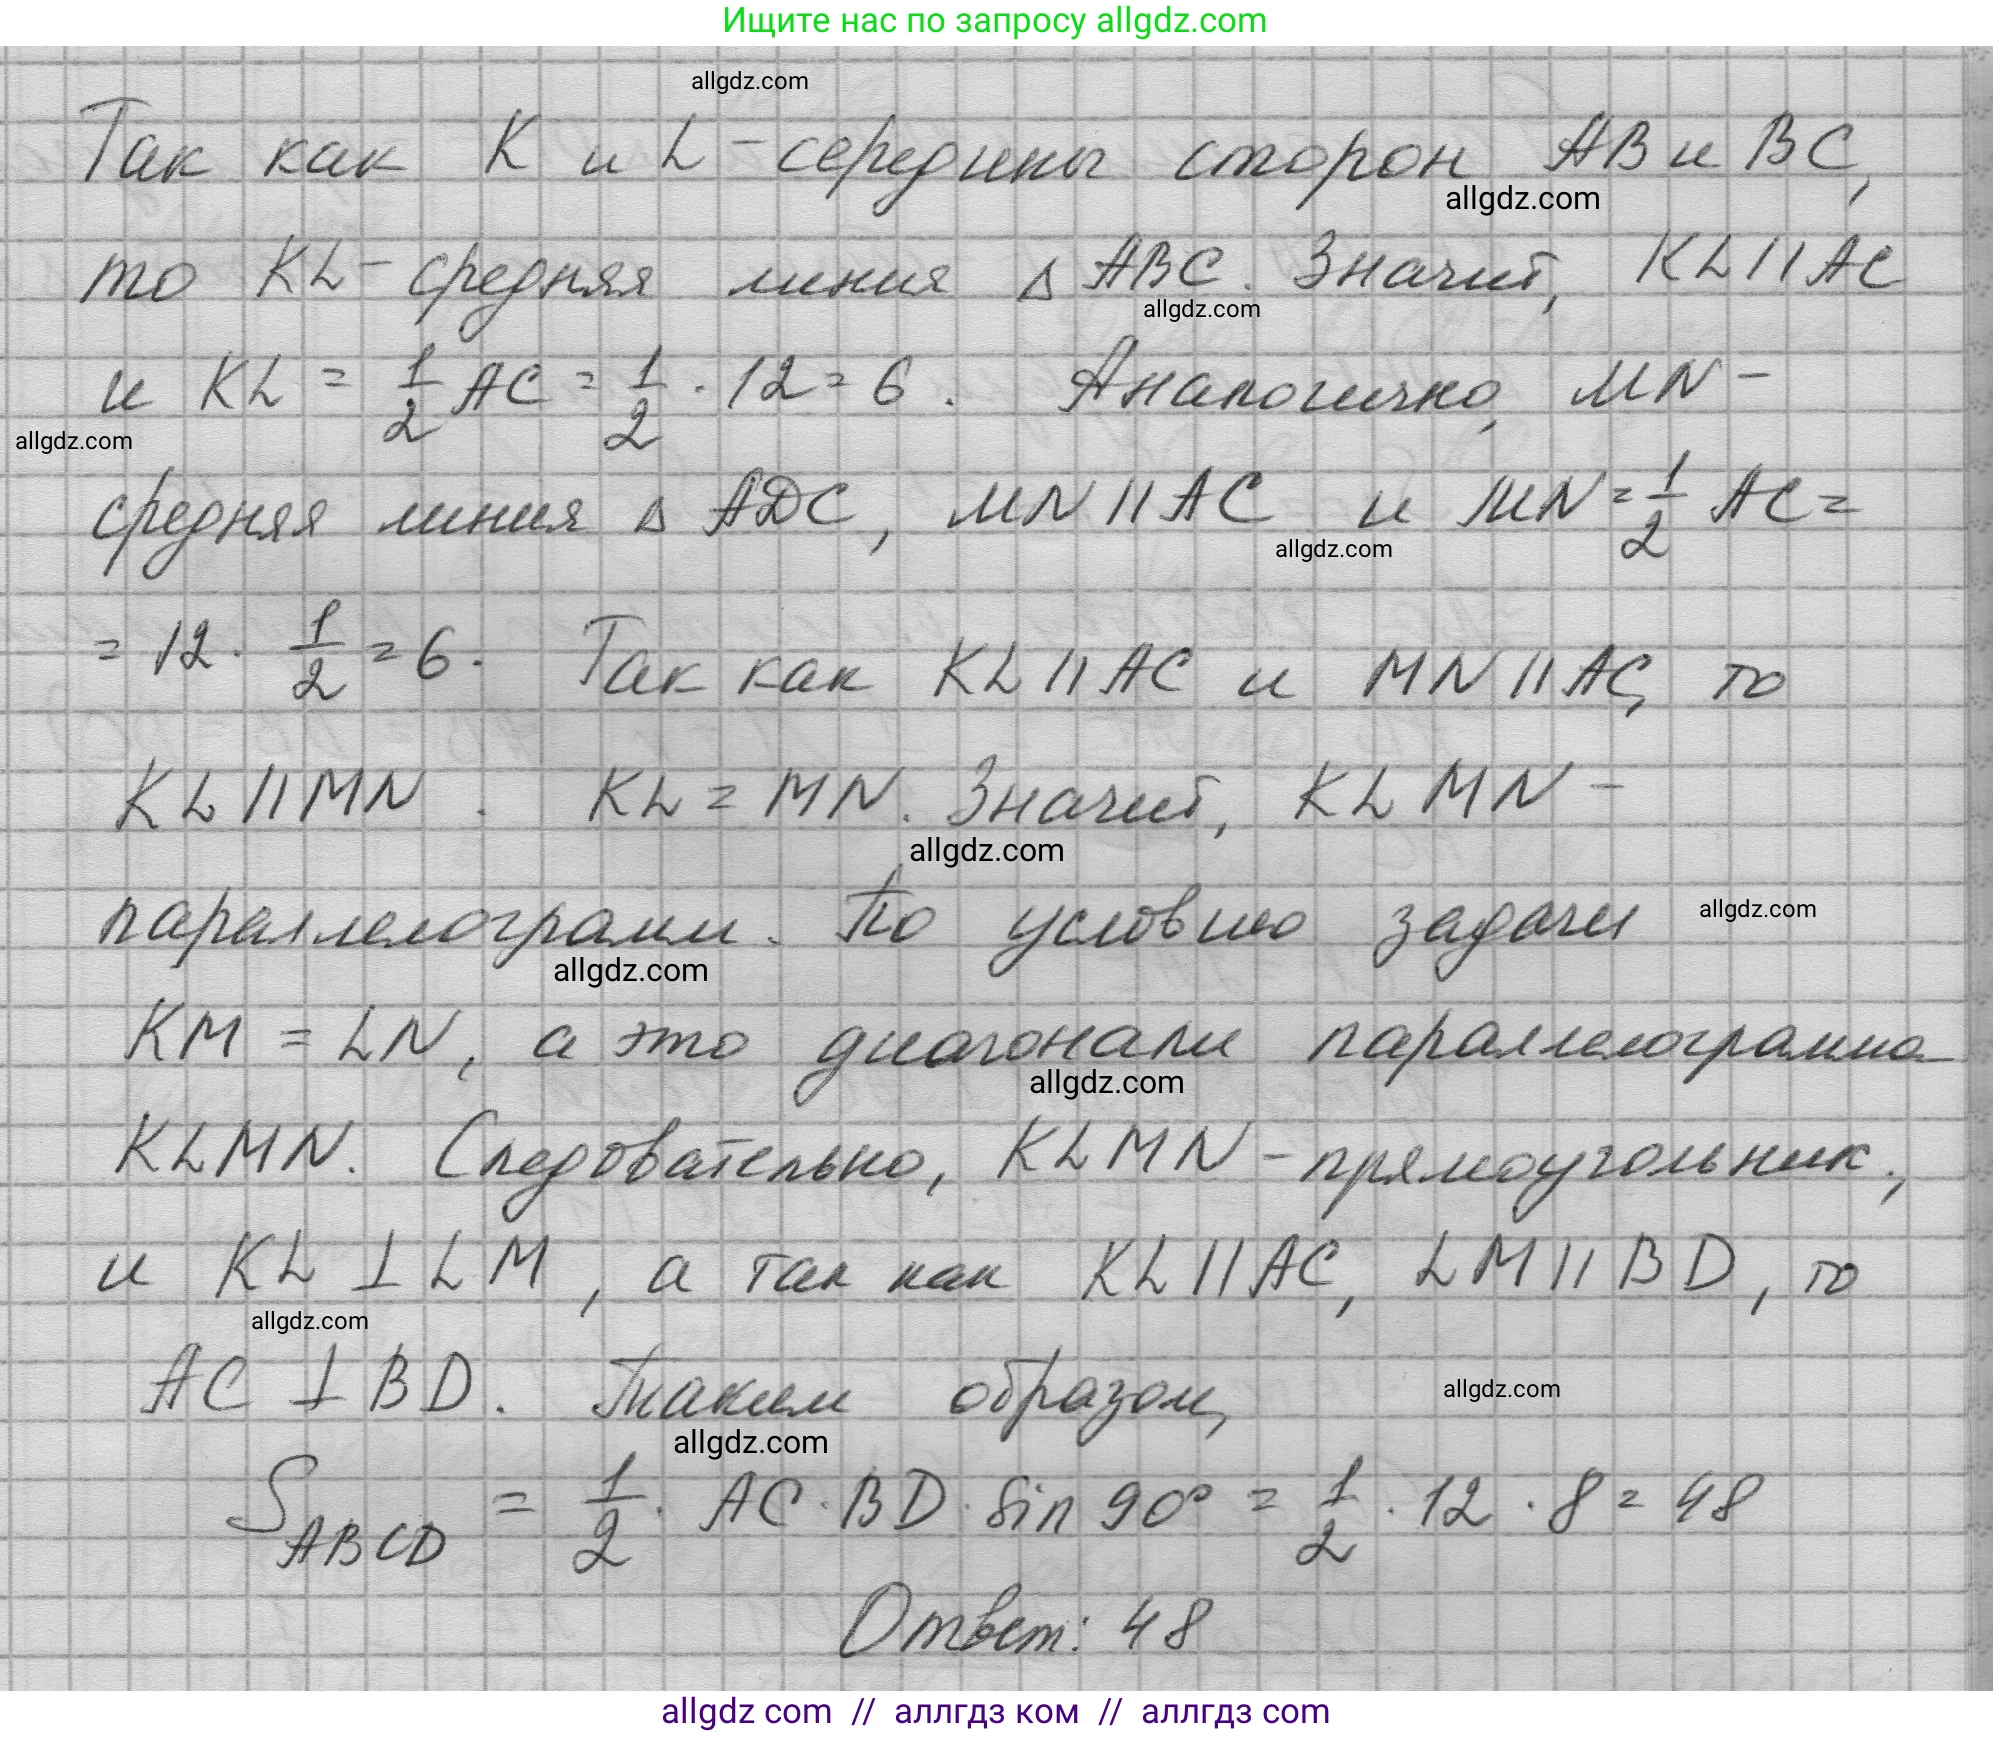 Ищите нас по запросу allgdz.com
allgdz.com
Так как K и L - середины сторон AB и BC,
allgdz.com
то KL - средняя линия △ ABC. Значит, KL || AC
allgdz.com
и KL = 1/2 AC = 1/2 · 12 = 6. Аналогично, MN -
allgdz.com
средняя линия △ ADC, MN || AC и MN = 1/2 AC =
allgdz.com
= 12 · 1/2 = 6. Так как KL || AC и MN || AC, то
KL || MN. KL = MN. Значит, KLMN -
allgdz.com
параллелограмм. По условию задачи
allgdz.com
allgdz.com
KM = LN, а это диагонали параллелограмма
allgdz.com
KLMN. Следовательно, KLMN - прямоугольник,
и KL ⊥ LM, а так как KL || AC, LM || BD, то
allgdz.com
AC ⊥ BD. Таким образом,
allgdz.com
allgdz.com
S ABCD = 1/2 · AC · BD · sin 90° = 1/2 · 12 · 8 = 48
Ответ: 48
allgdz com // аллгдз ком // аллгдз com